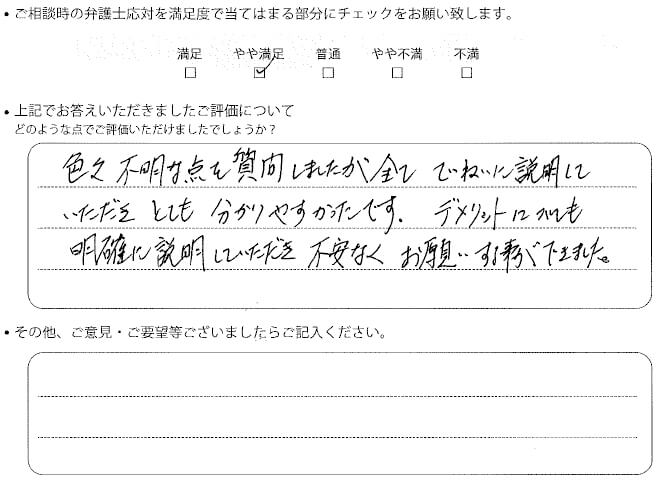 ・ご相談時の弁護士応対を満足度で当てはまる部分にチェックをお願い致します。
満足 やや満足 普通 やや不満 不満
□ ☑ □ □ □
・上記でお答えいただきましたご評価について
どのような点でご評価いただけましたでしょうか?
色々 不明な点を質問しましたが 全て ていねいに説明して
いただき とても 分かりやすかったです. デメリットについても
明確に説明していただき 不安なく お願いする事ができました。
・その他、ご意見・ご要望等ございましたらご記入ください。